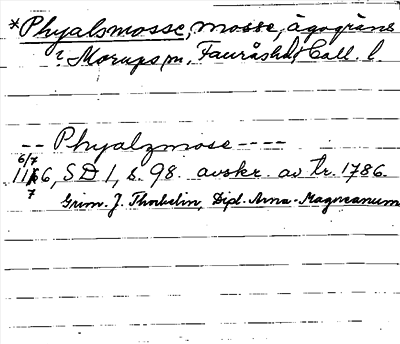 *Phyalsmosse, mosse, ägogräns
i Morups sn, Fauråshd, Hall. l.
-- Phyalzmose ----
6/7
1176, SD 1, s. 98. avskr. av tr. 1786.
7
Grim. J. Thorkelin, Dipl. Arna-Magnæanum